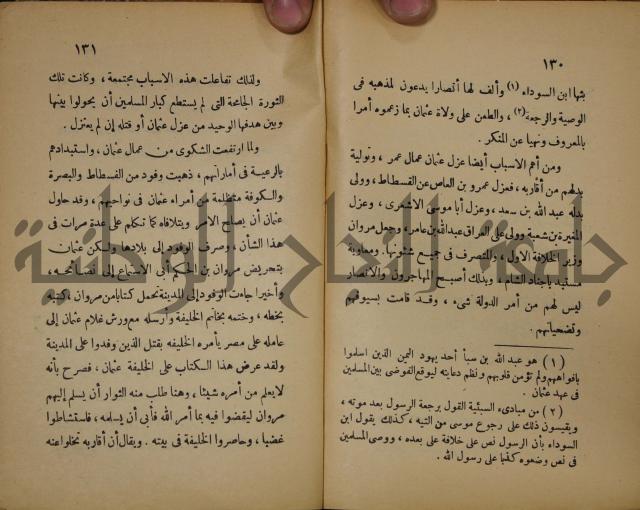 ١٣٠
بثها ابن السوداء (١) وألف لها أنصارا يدعون لمذهبه فى
الوصية والرجعة (٢) ، والطعن على ولاة عثمان بما زعموه أمرا
بالمعروف ونهيا عن المنكر .
ومن أهم الاسباب أيضا عزل عثمان عمال عمر ، وتولية
بدلهم من أقاربه ، فعزل عمرو بن العاص عن الفسطاط ، وولى
بدله عبد الله بن سعد ، وعزل أبا موسى الاشعرى ، وعزل
المغيرة بن شعبة وولى على العراق عبد الله بن عامر ، وجعل مروان
وزير الخلافة الاول ، والمتصرف فى جميع شئونها . ومعاوية
مستبد باجناد الشام ، وبذلك أصبح المهاجرون والانصار
ليس لهم من أمر الدولة شىء ، وقد قامت بسيوفهم
وتضحياتهم .
( ١ ) هو عبد الله بن سبأ أحد يهود اليمن الذين اسلموا
بافواههم ولم تؤمن قلوبهم ونظم دعايته ليوقع الفوضى بين المسلمين
فى عهد عثمان .
( ٢ ) من مبادىء السبئية القول برجعة الرسول بعد موته ،
ويقيسون ذلك على رجوع موسى من التيه ، كذلك يقول ابن
السوداء بأن الرسول نص على خلافة على بعده ، ووصى المسلمين
فى نص وضعوه كذبا على رسول الله .
١٣١
ولذلك تفاعلت هذه الاسباب مجتمعة ، وكانت تلك
الثورة الجامحة التى لم يستطع كبار المسلمين أن يحولوا بينها
وبين هدفها الوحيد من عزل عثمان أو قتله إن لم يعتزل .
ولما ارتفعت الشكوى من عمال عثمان ، واستبدادهم
بالرعية فى أماراتهم ، ذهبت وفود من الفسطاط والبصرة
والكوفة متظلمة من أمراء عثمان فى نواحيهم ، وقد حاول
عثمان أن يصلح الامر ويتلافاه كما تكلم على عدة مرات فى
هذا الشأن ، وصرف الوفود إلى بلادها ولكن عثمان
بتحريض مروان بن الحكم أبى الاستماع إلى نصائحه ،
وأخيرا جاءت الوفود إلى المدينة تحمل كتابا من مروان ، كتبه
بخطه ، وختمه بخاتم الخليفة وأرسله مع ورش غلام عثمان إلى
عامله على مصر يأمره الخليفه بقتل الذين وفدوا على المدينة
ولقد عرض هذا الكتاب على الخليفة عثمان ، فصرح بأنه
لا يعلم من أمره شيئا ، وهنا طلب منه الثوار أن يسلم إليهم
مروان ليقضوا فيه بما أمر الله فأبى أن يسلمه ، فاستشاطوا
غضبا ، وحاصروا الخليفة فى بيته . ويقال أن أقاربه تخلوا عنه
جامعة النجاح الوطنية